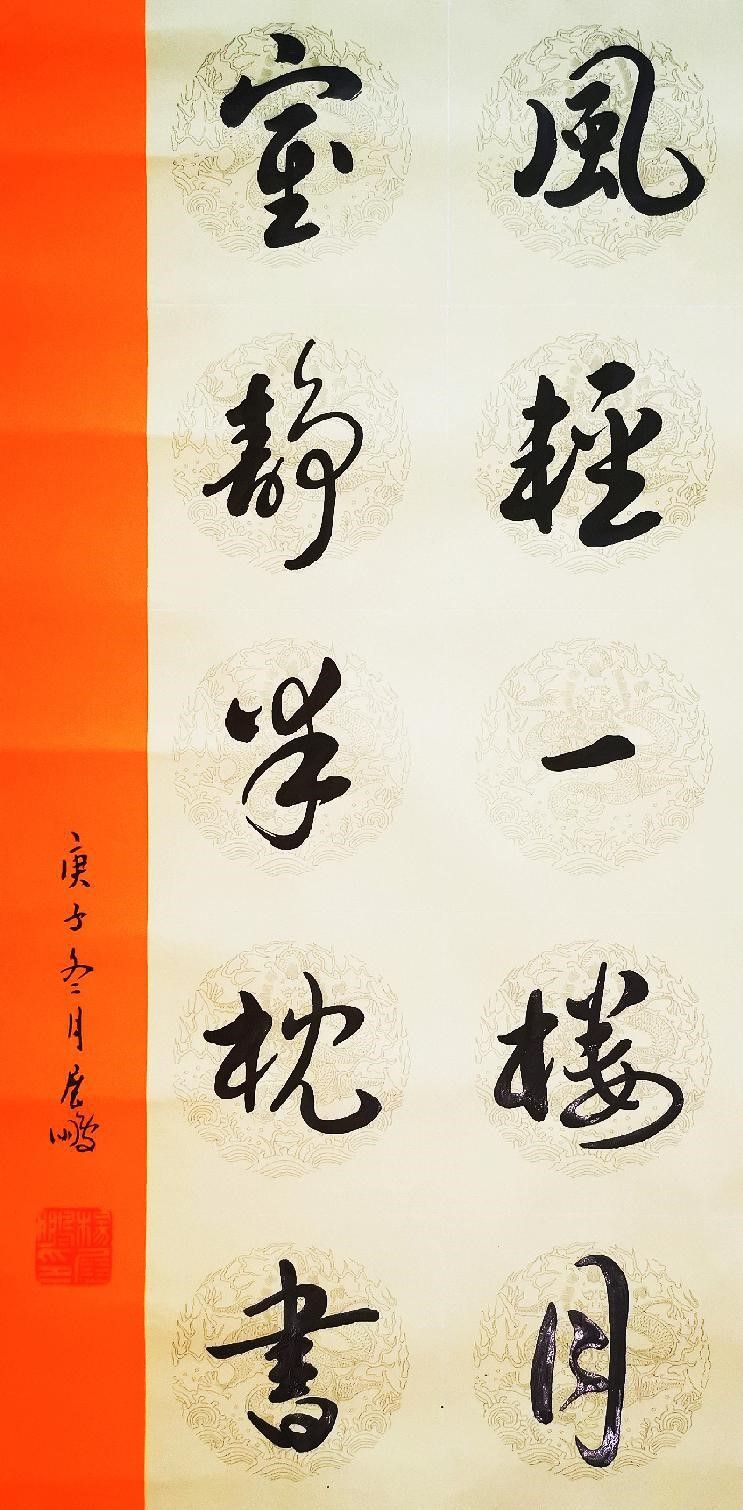 風輕一楼月
室靜半枕書
庚子冬月展鵬